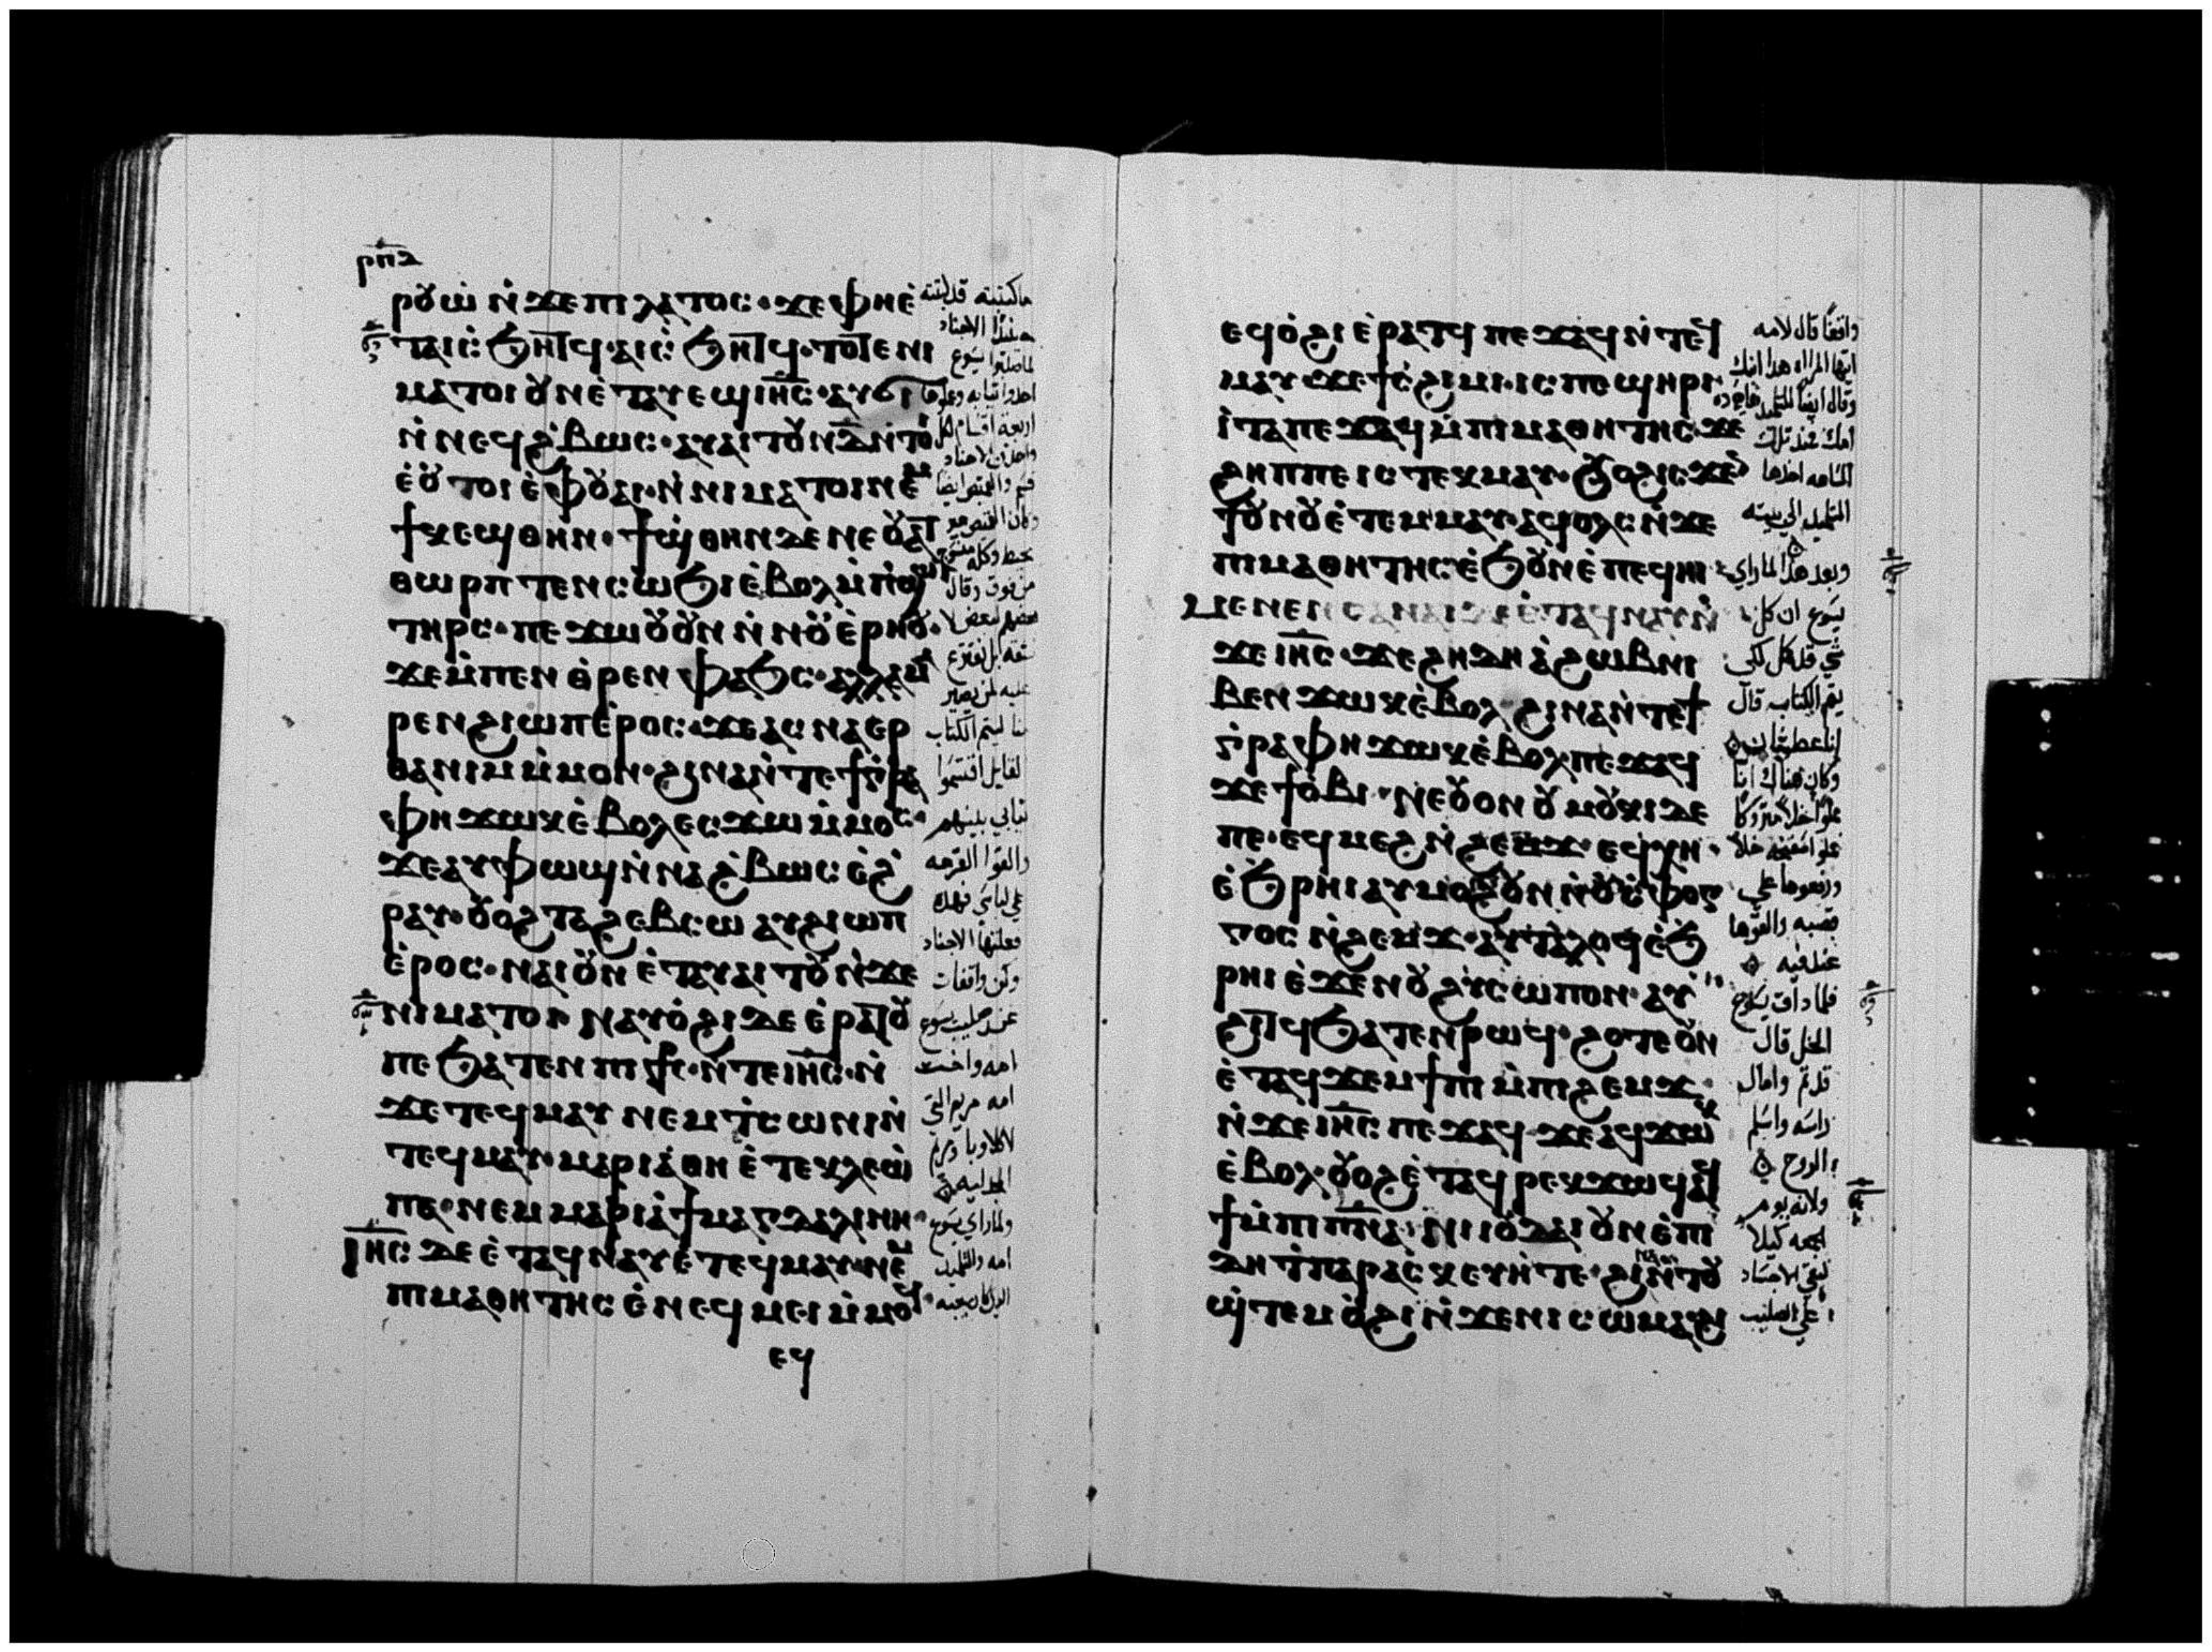 ⲣⲡⲃ
ⲣⲟⲩⲱ ⲛ̇ϫⲉⲡⲓⲗⲁⲧⲟⲥ· ϫⲉⲫⲏⲉ̇
ⲧⲁⲓⲥ̇ϧⲏⲧϥ· ⲁⲓⲥ̇ϧⲏⲧϥ· ⲧⲟⲧⲉⲛⲓ
ⲙⲁⲧⲟⲓ ⲟⲩⲛⲉ̇ⲧⲁⲩⲉϣⲓⲏ̅ⲥ̅· ⲁⲩϭⲓ
ⲛ̇ⲛⲉϥϩ̇ⲃⲱⲥ· ⲁⲩⲁⲓⲧⲟⲩ ⲛ̇ⲇ̅ⲛ̇ⲧⲟⲓ
ⲉ̇ⲟⲩⲧⲟⲓ ⲉ̇ⲫⲟⲩⲁⲓ· ⲛ̇ⲛⲓⲙⲁⲧⲟⲓ ⲛⲉⲙ
ϯⲕⲉϣⲑⲏⲛ· ϯϣ̇ⲑⲏⲛ ⲇⲉ ⲛⲉⲟⲩⲁⲧ
ⲑⲱⲣⲡ ⲧⲉ ⲛⲥⲱϧⲓ ⲉ̇ⲃⲟⲗ ⲙ̇ⲡⲱ̇ϣⲓ
ⲧⲏⲣⲥ· ⲡⲉϫⲱⲟⲩ ⲟⲩⲛ ⲛ̇ⲛⲟⲩⲉ̇ⲣⲏⲟⲩ·
ϫⲉⲙ̇ⲡⲉⲛⲑⲣⲉⲛⲫⲁϧⲥ· ⲁⲗⲗⲁ ⲙⲁ
ⲣⲉⲛϩⲓⲱⲡ ⲉ̇ⲣⲟⲥ· ϫⲉⲁⲥⲛⲁⲉⲣ
ⲑⲁⲛⲓⲙ ⲙ̇ⲙⲟⲛ· ϩⲓⲛⲁ ⲛ̇ⲧⲉϯⲅ̇ⲣⲁ
ⲫⲏ ϫⲱⲕ ⲉ̇ⲃⲟⲗ ⲉⲥϫⲱ ⲙ̇ⲙⲟⲥ·
ϫⲉⲁⲩⲫⲱϣ ⲛ̇ⲛⲁϩ̇ⲃⲱⲥ ⲉϩ̇
ⲣⲁⲩ· ⲟⲩⲟϩ ⲧⲁϩⲉⲃⲥⲱ ⲁⲩϩⲓⲱⲡ
ⲉ̇ⲣⲟⲥ· ⲛⲁⲓ ⲟⲩⲛ ⲉ̇ⲧⲁⲩⲁⲓⲧⲟⲩ ⲛ̇ϫⲉ
ⲛⲓⲙⲁⲧⲟⲓ ⲛⲁⲩⲟ̇ϩⲓ ⲇⲉ ⲉ̇ⲣⲁⲧⲟⲩ
ⲡⲉ ϧⲁⲧⲉⲛ ⲡⲓϯⲥ· ⲛ̇ⲧⲉⲓⲏ̅ⲥ̅· ⲛ̇
ϫⲉ ⲧⲉϥⲙⲁⲩ ⲛⲉⲙ ⲧ̇ⲥⲱⲛⲓ ⲛ̇
ⲧⲉϥⲙⲁⲩ· ⲙⲁⲣⲓⲁ ⲑⲏ ⲉ̇ⲧⲉ ⲕⲗⲉⲱ̇
ⲡⲉ· ⲛⲉⲙ ⲙⲁⲣⲓⲁ ϯⲙⲁⲅⲇⲁⲗⲓⲛⲏ·
ⲓⲏ̅ⲥ̅ ⲇⲉ ⲉ̇ⲧⲁϥⲛⲁⲩ ⲉ̇ⲧⲉϥⲙⲁⲩ ⲛⲉⲙ
ⲡⲓⲙⲁⲑⲏⲧⲏⲥ ⲉ̇ⲛⲉϥⲙⲉⲓ ⲙ̇ⲙⲟϥ·
ⲉϥ
ما كتبته قد كتبته
حينئذ الاجناد
لما صلبوا يسوع
اخذوا ثيابه وجعلوها
اربعة اقسام لكل
واحد من الاجناد
قسم والقميص ايضا
وكان القميص غير
مخيط وكله منسوج
من فوق وقال
بعضهم لبعض لا
نشقه بل نقترع
عليه لمن يصير
لنا ليتم الكتاب
القايل اقتسموا
ثيابي بينهم
والقوا القرعه
علي لباسي فهذه
فعلتها الاجناد
وكن واقفات
عند صليب يسوع
امه واخت
امه مريم التي
لاكلاوبا ومريم
المجدليه
ولما راي يسوع
امه والتلميذ
الذي كان يحبه
ⲉϥⲟ̇ϩⲓ ⲉ̇ⲣⲁⲧϥ ⲡⲉϫⲁϥ ⲛ̇ⲧⲉϥ
ⲙⲁⲩ ϫⲉϯⲥ̇ϩⲓⲙⲓ· ⲓⲥ ⲡⲉϣⲏⲣⲓ
ⲓ̇ⲧⲁ ⲡⲉϫⲁϥ ⲙ̇ⲡⲓⲙⲁⲑⲏⲧⲏⲥ· ϫⲉ
ϩⲏⲡⲡⲉ ⲓⲥ ⲧⲉⲕⲙⲁⲩ· ⲟⲩⲟϩ ⲓⲥϫⲉⲛ
ϯⲟⲩⲛⲟⲩ ⲉ̇ⲧⲉⲙⲙⲁⲩ ⲁϥⲟⲗⲥ ⲛ̇ϫⲉ
ⲡⲓⲙⲁⲑⲏⲧⲏⲥ ⲉ̇ϧⲟⲩⲛ ⲉ̇ⲡⲉϥⲏⲓ·
ⲙⲉⲛⲉⲛⲥⲁ ⲛⲁⲓ ⲇⲉ ⲉ̇ⲧⲁϥⲛⲁⲩ ⲛ̇
ϫⲉ ⲓⲏ̅ⲥ̅· ϫⲉϩⲏⲇⲏ ⲁ̇ϩⲱⲃ ⲛⲓ
ⲃⲉⲛ ϫⲱⲕ ⲉ̇ⲃⲟⲗ ϩⲓⲛⲁ ⲛ̇ⲧⲉϯ
ⲅ̇ⲣⲁⲫⲏ ϫⲱⲕ ⲉ̇ⲃⲟⲗ ⲡⲉϫⲁϥ
ϫⲉϯⲟ̇ⲃⲓ· ⲛⲉⲟⲩⲟⲛ ⲟⲩⲙⲟⲕⲓ ⲇⲉ
ⲡⲉ· ⲉϥⲙⲉϩ ⲛ̇ϩⲉⲙϫ· ⲉϥⲭⲏ·
ⲉ̇ϧⲣⲏⲓ ⲁⲩⲙⲟϩ ⲟⲩⲛ ⲛ̇ⲟⲩⲥ̇ⲫⲟⲅ
ⲅⲟⲥ ⲛ̇ϩⲉⲙϫ· ⲁⲩⲧⲁⲗⲟϥ ⲉ̇ϧ
ⲣⲏⲓ ⲉ̇ϫⲉⲛ ⲟⲩϩⲩⲥⲱⲡⲟⲛ· ⲁⲩ
ϩⲓⲧϥ ϧⲁⲧⲉⲛ ⲣⲱϥ· ϩⲟⲧⲉ ⲟⲩⲛ
ⲉ̇ⲧⲁϥϫⲉⲙϯⲡⲓ ⲙ̇ⲡⲓϩⲉⲙϫ·
ⲛ̇ϫⲉ ⲓⲏ̅ⲥ̅ ⲡⲉϫⲁϥ ϫⲉⲁϥϫⲱⲕ
ⲉ̇ⲃⲟⲗ· ⲟⲩⲟϩ ⲉ̇ⲧⲁϥⲣⲉⲕ ϫⲱϥ ⲁϥ
ϯ ⲙ̇ⲡⲓⲡ̅ⲛ̅ⲁ̅· ⲛⲓⲓⲟⲩⲇⲁⲓ ⲟⲩⲛ ⲉ̇ⲡⲓ
ⲇⲏ ⲧ̇ⲡⲁⲣⲁⲥⲕⲉⲩⲏ ⲧⲉ· ϩⲓⲛⲁ ⲛ̇ⲧⲟⲩ
ϣ̇ⲧⲉⲙⲟ̇ϩⲓ ⲛ̇ϫⲉ ⲛⲓⲥⲱⲙⲁ
واقفا قال لامه
ايتها المراه هذا ابنك
وقال ايضا للتلميذ
امك فمنذ تلك
الساعه اخذها
التلميذ الي بيته
وبعد هذا لما راي
يسوع ان كل
شي قد كمل لكي
يتم الكتاب قال
انا عطشان
وكان هناك انا
مملوا خلا متروكا
فملوا اسفنجه خلا
ورفعوها علي
قصبه والقوها
عند فيه
فلما ذاق يسوع
الخل قال
قد تم وامال
راسه واسلم
الروح
ولانه يوم
جمعه كيلا
تبقي الاجساد
علي الصليب